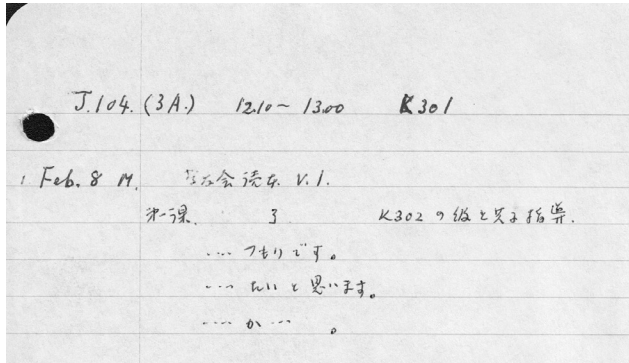 J.104. (3A.) 12.10~ 13.00 K301
1. Feb. 8 M. 会読本 V.1.
第一課. 了 K302の級と共に指導.
.... つもりです。
.... たいと思います。
.... か .... 。